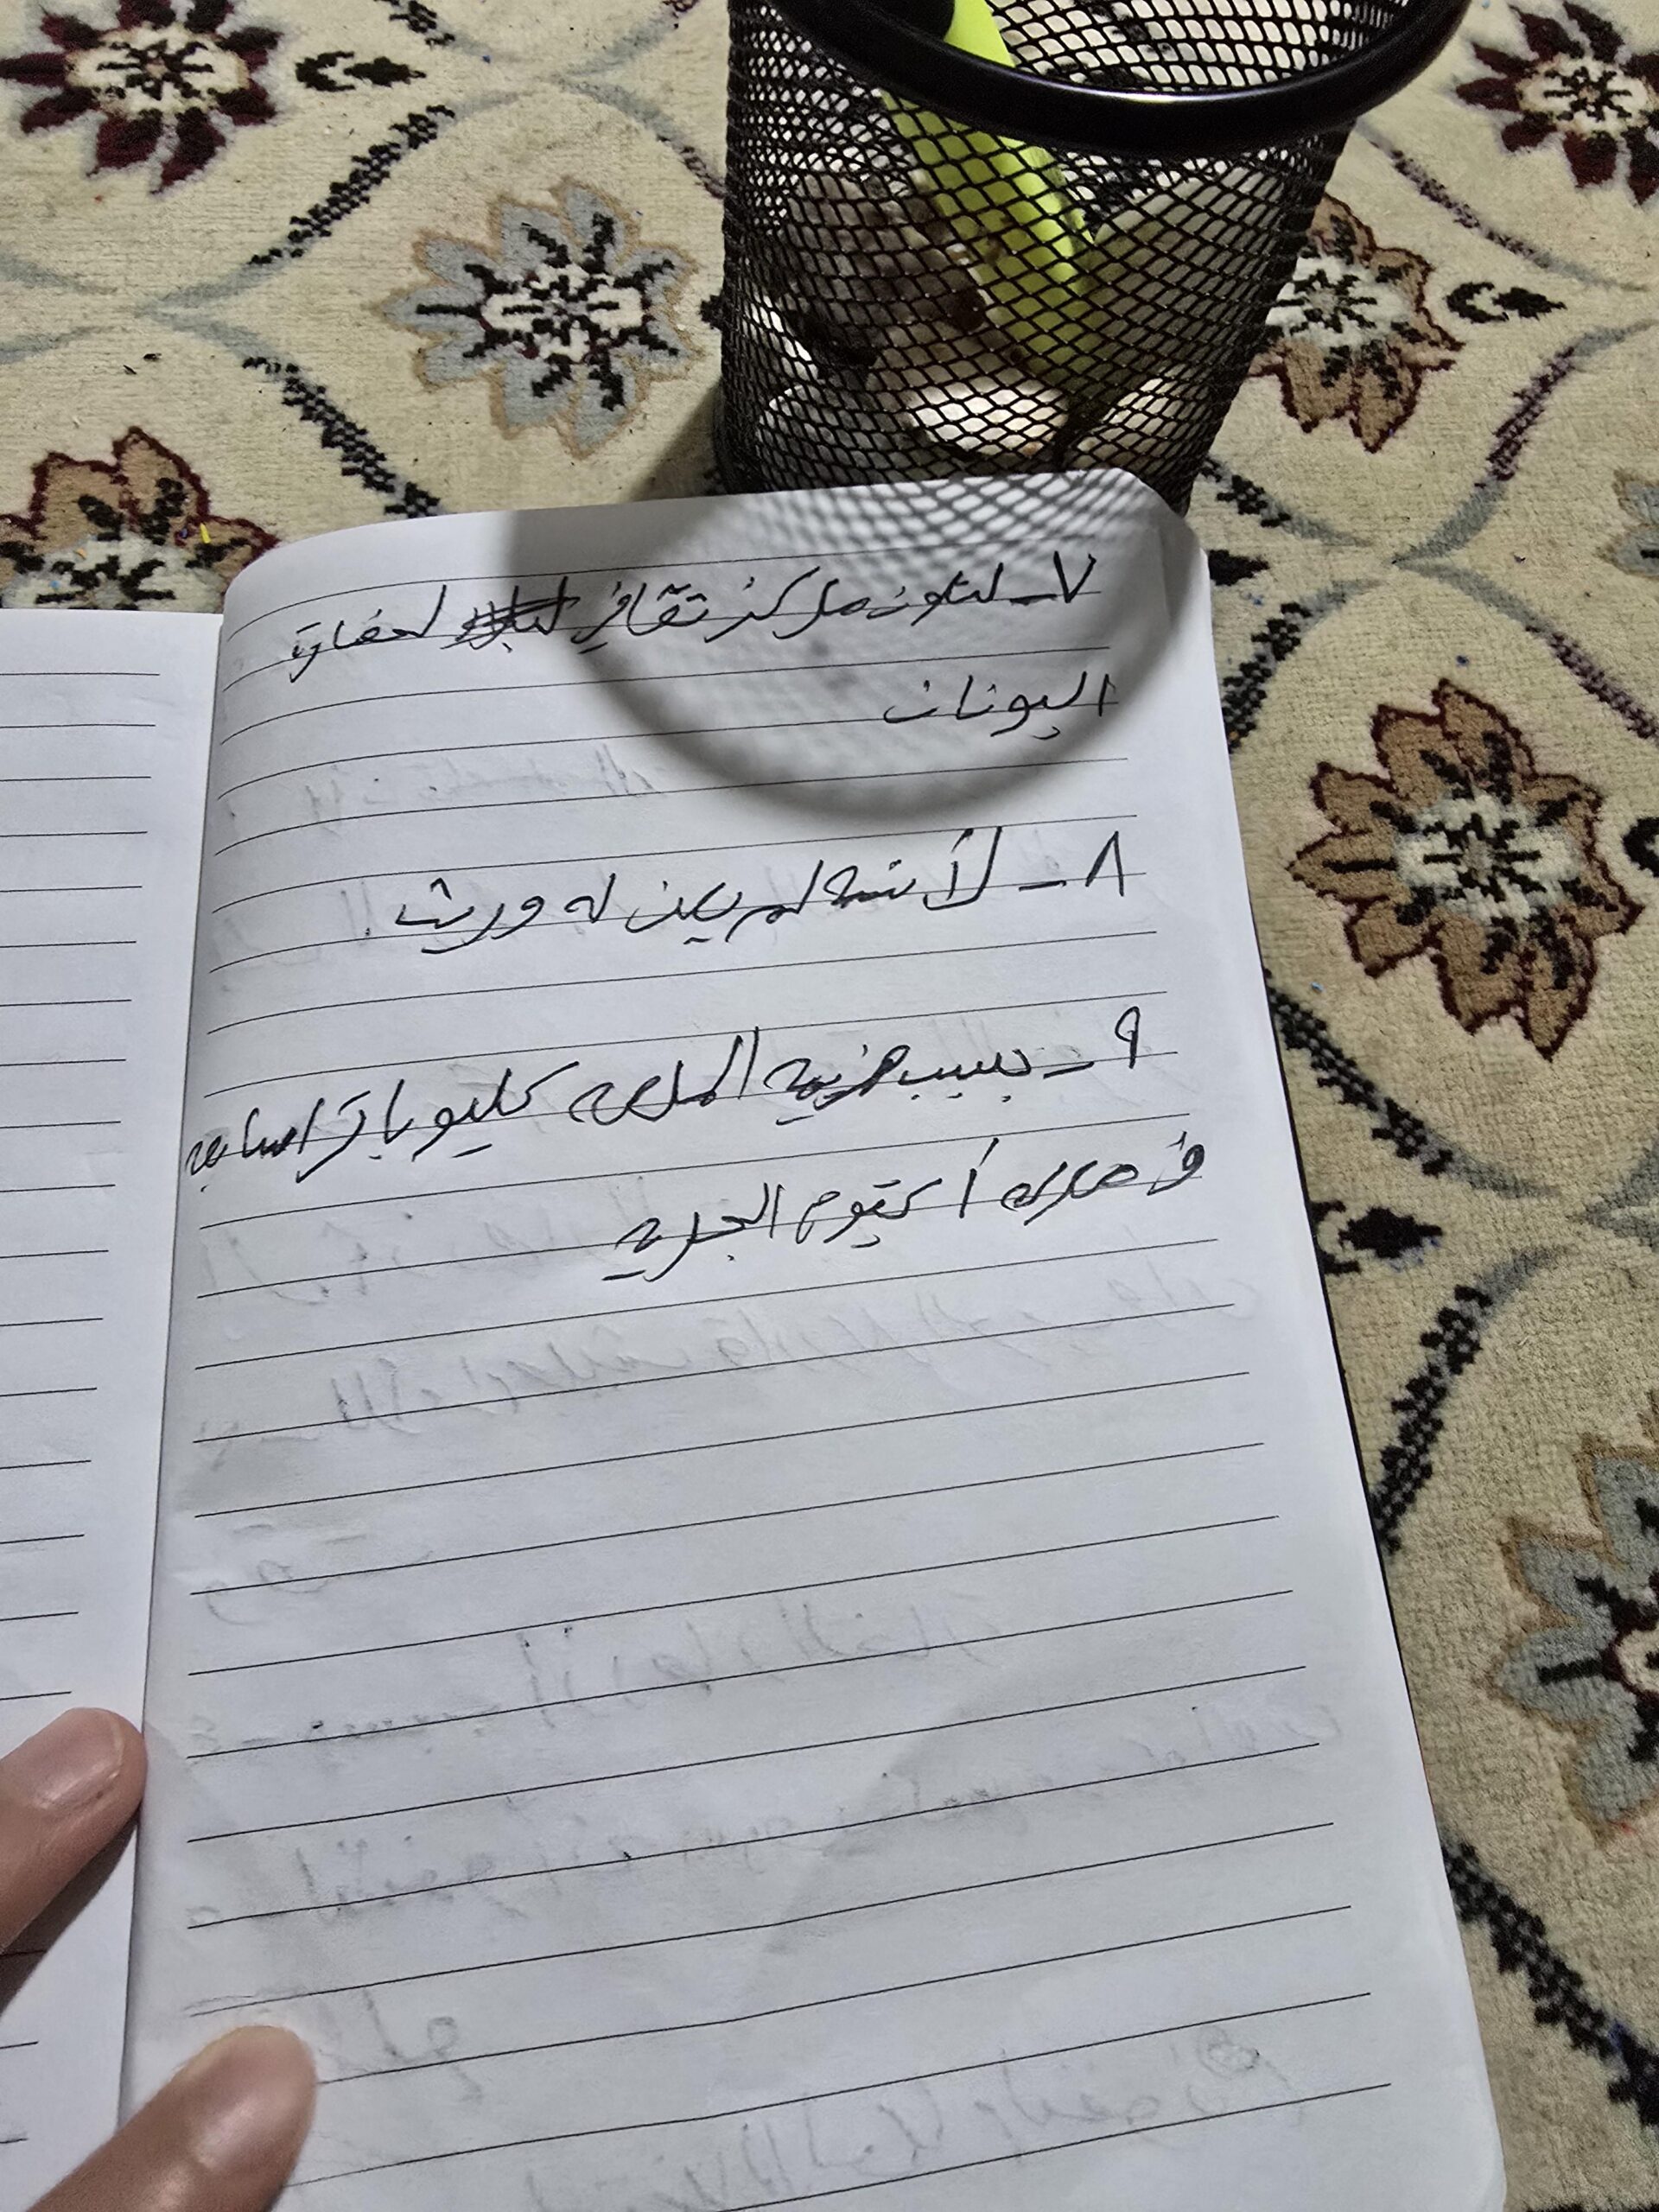 ٧ - لتكون مركز ثقافي لحضارة
اليونان
٨ - لأنه لم يكن له وريث
٩ - بسبب هزيمة الملكة كليوباترا السابعة
في معركة أكتيوم البحرية